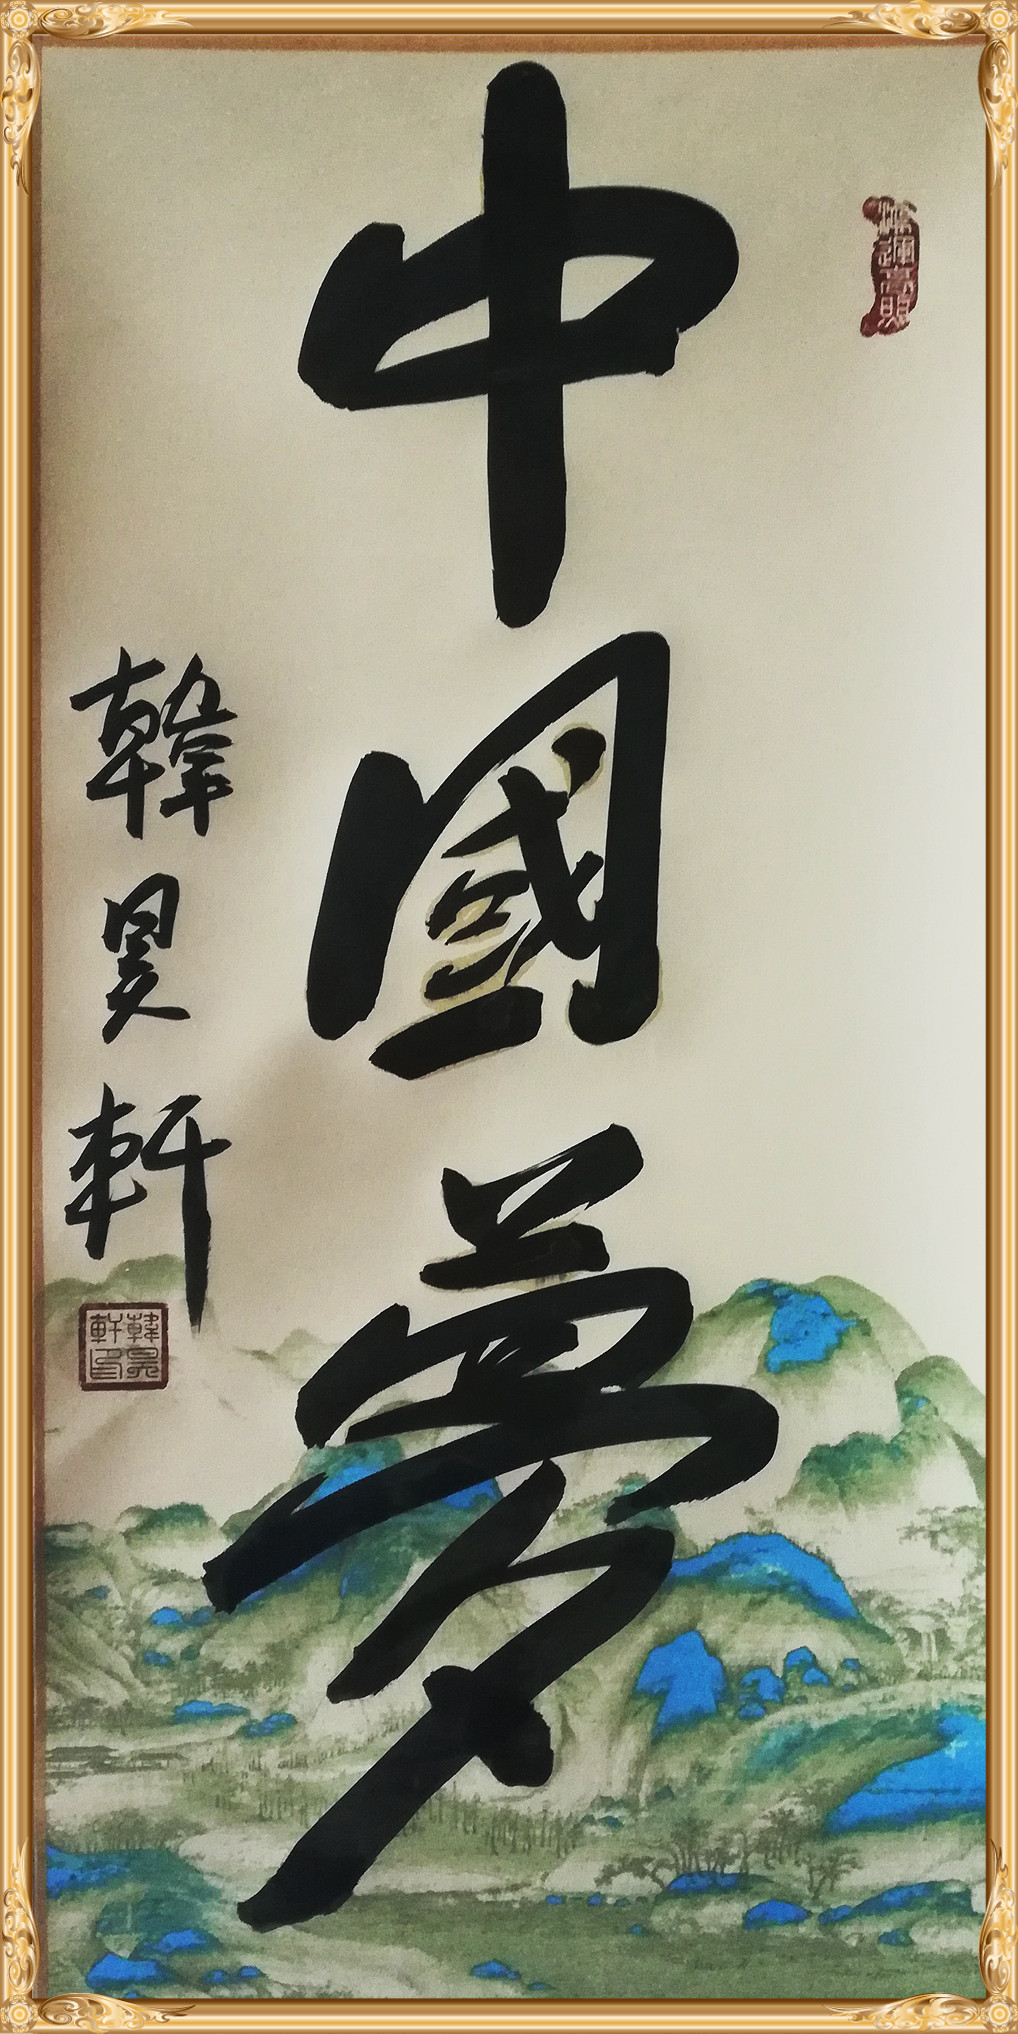 中國夢
韓昊軒
韓昊軒印